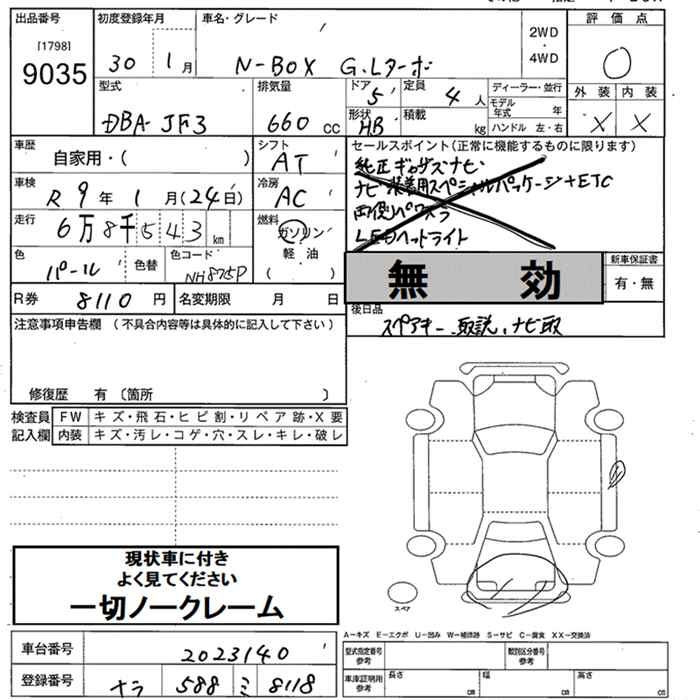 出品番号 初度登録年月 車名・グレード 評価点
[1798]
9035
30 1月 N-BOX G.Lターボ 2WD・4WD
型式 排気量 ドア 5 定員 4人 ディーラー・並行 外装 内装
モデル年式 年
DBA-JF3 660cc 形状 HB 積載 kg ハンドル 左・右 X X
車歴 シフト セールスポイント(正常に機能するものに限ります)
自家用・( ) AT 純正ギャザズナビ
車検 冷房 ナビ装着用スペシャルパッケージ+ETC
R9年1月(24日) AC 両側パワスラ
走行 燃料 LEDヘッドライト
6万8千543km ガソリン
軽油
( )
色 パール 色替 色コード NH875P
無効 新車保証書
有・無
R券 8110円 名変期限 月 日
後日品
スペアキー、取説、ナビ取
注意事項申告欄(不具合内容等は具体的に記入して下さい)
修復歴 有〔箇所 〕
検査員記入欄 FW キズ・飛石・ヒビ割・リペア跡・X要
内装 キズ・汚レ・コゲ・穴・スレ・キレ・破レ
現状車に付き
よく見てください
一切ノークレーム
スペア
A−キズ E−エクボ U−凹み W−補修跡 S−サビ C−腐食 XX−交換済
車台番号 2023140
型式指定番号 参考 類別区分番号 参考
登録番号 ナラ 588 ミ 8118
車庫証明用 参考 長さ cm 幅 cm 高さ cm